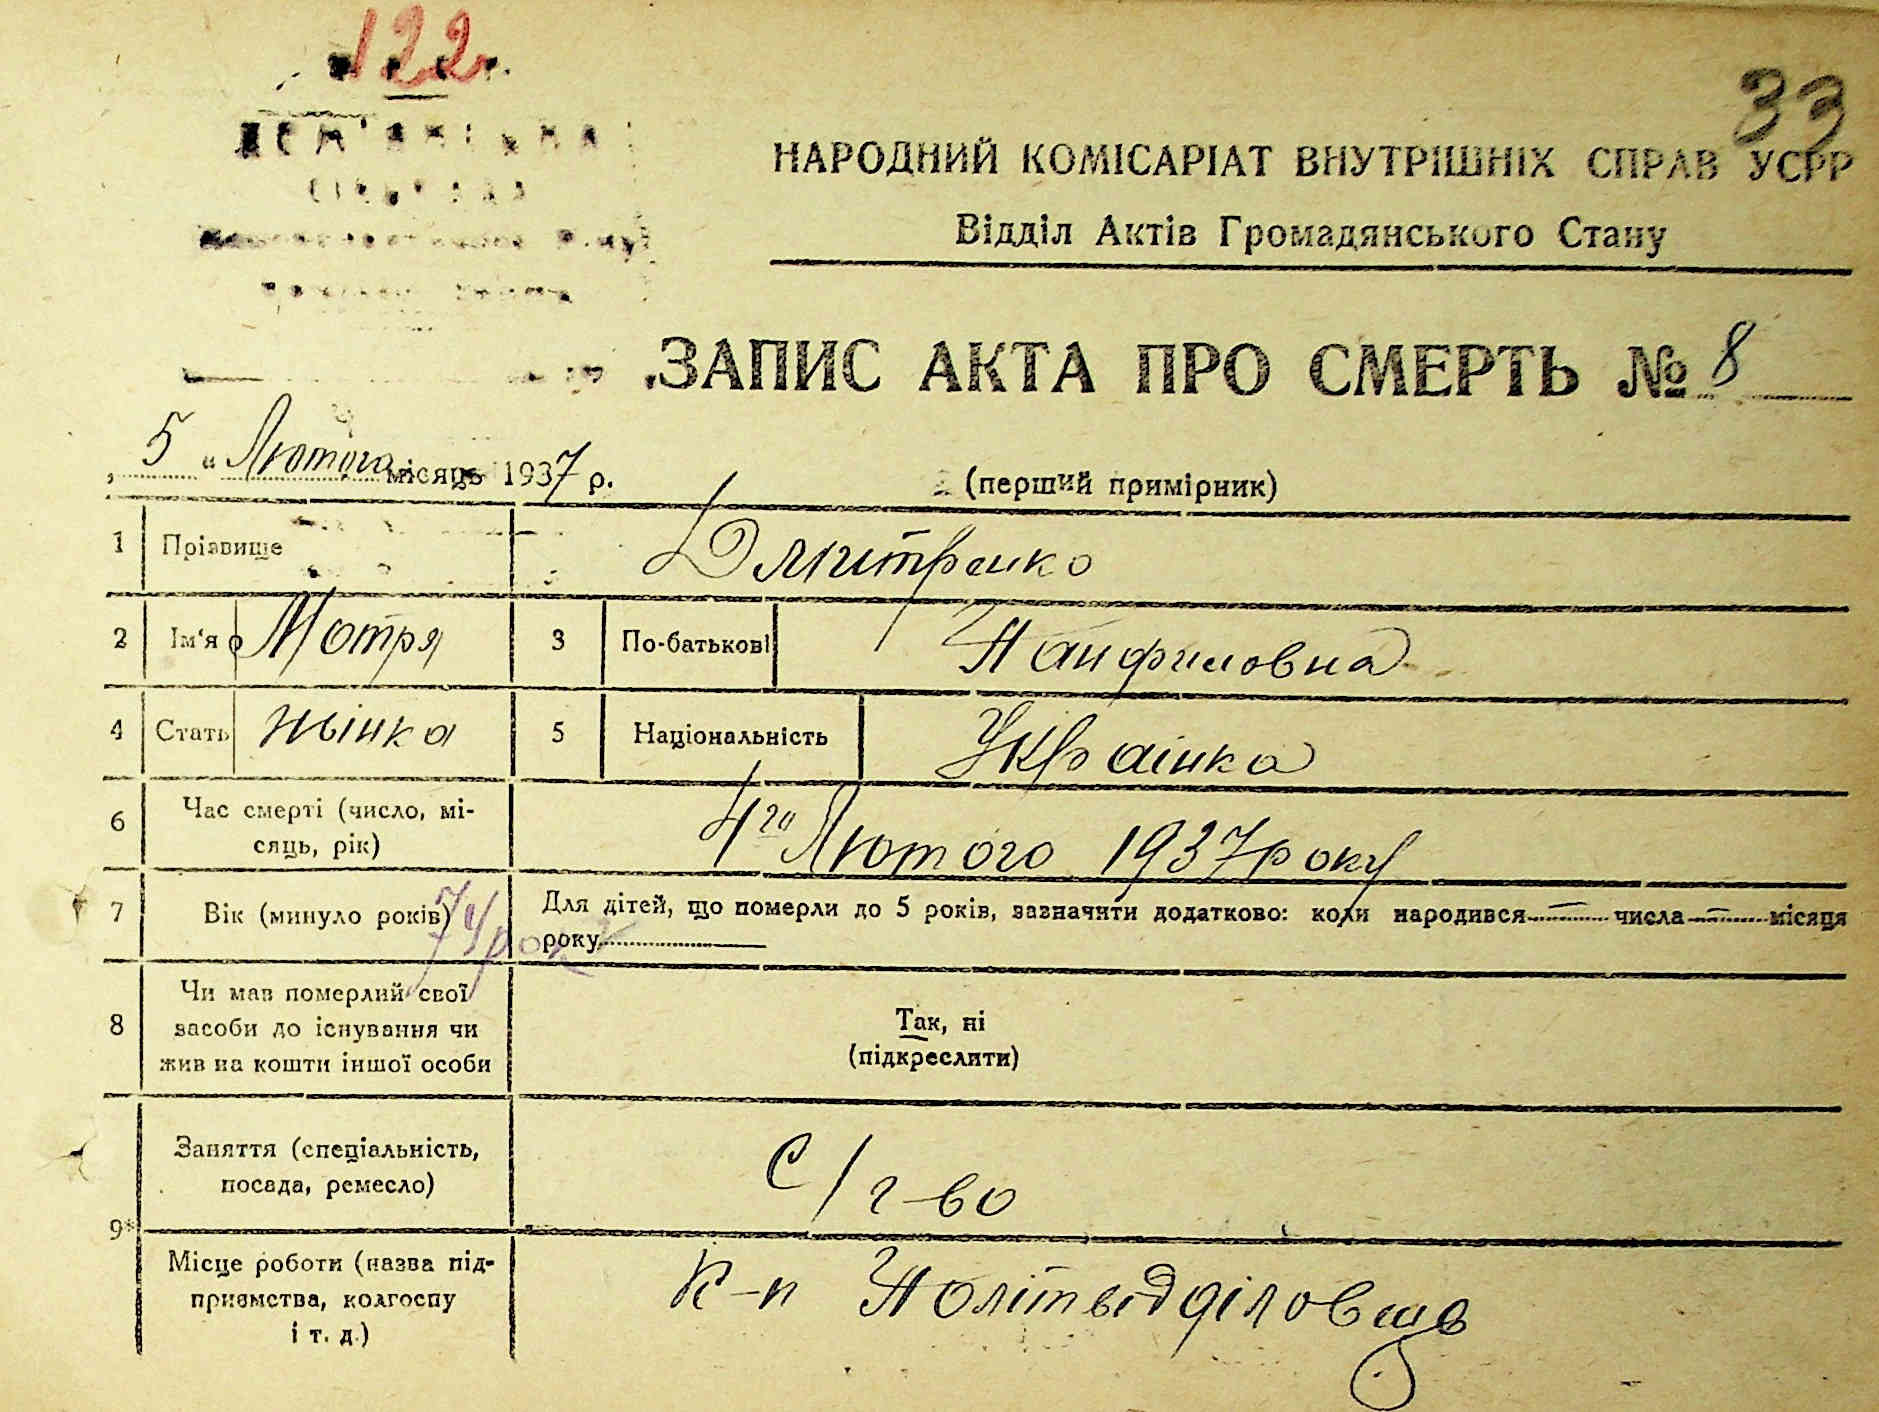 122
33
НАРОДНИЙ КОМІСАРІАТ ВНУТРІШНІХ СПРАВ УСРР
Відділ Актів Громадянського Стану
ЗАПИС АКТА ПРО СМЕРТЬ № 8
5 " Лютого місяць 1937 р.
(перший примірник)
1 Прізвище Дмитренко
2 Ім'я Мотря 3 По-батькові Панфиловна
4 Стать жінка 5 Національність Українка
6 Час смерті (число, мі-
сяць, рік) 4го Лютого 1937 року
7 Вік (минуло років) 74 рок Для дітей, що померли до 5 років, зазначити додатково: коли народився числа місяця
року
8 Чи мав померлий свої
засоби до існування чи
жив на кошти іншої особи
Так, ні
(підкреслити)
9* Заняття (спеціальність,
посада, ремесло) С/г-во
Місце роботи (назва під-
приємства, колгоспу
і т. д.) К-п Політвідділовець